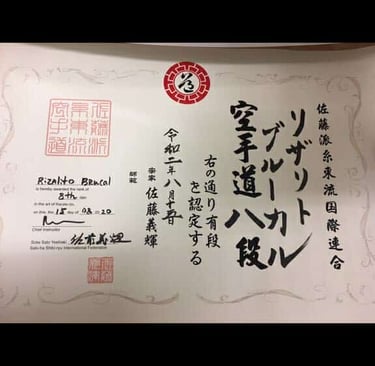 佐藤派糸東流国際連合
リザリト
ブルーカル
空手道八段
右の通り有段
を認定する
令和二年八月十五日
宗家 佐藤義輝
師範
佐藤派
糸東流
空手道
Rizalito
is hereby awarded the rank of
8th dan
in the art of Karate-do,
on this the 15 day of 08 20
Chief Instructor
Soke Sato Yoshiteki 佐藤義輝
Sato-ha Shito-ryu International Federation